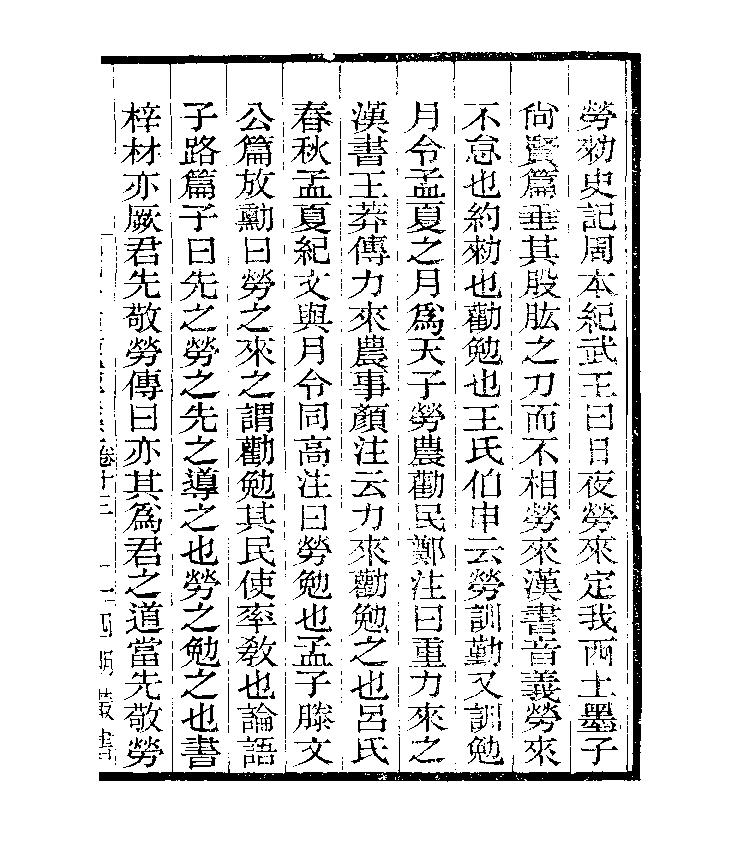 勞勑史記周本紀武王曰日夜勞來定我西土墨子
尙賢篇垂其股肱之力而不相勞來漢書音義勞來
不怠也約勑也勸勉也王氏伯申云勞訓勤又訓勉
月令孟夏之月爲天子勞農勸民鄭注曰重力來之
漢書王莽傳力來農事顏注云力來勸勉之也呂氏
春秋孟夏紀文與月令同高注曰勞勉也孟子滕文
公篇放勳曰勞之來之謂勸勉其民使率敎也論語
子路篇子曰先之勞之先之導之也勞之勉之也書
梓材亦厥君先敬勞傳曰亦其爲君之道當先敬勞
卷十三 四明叢書